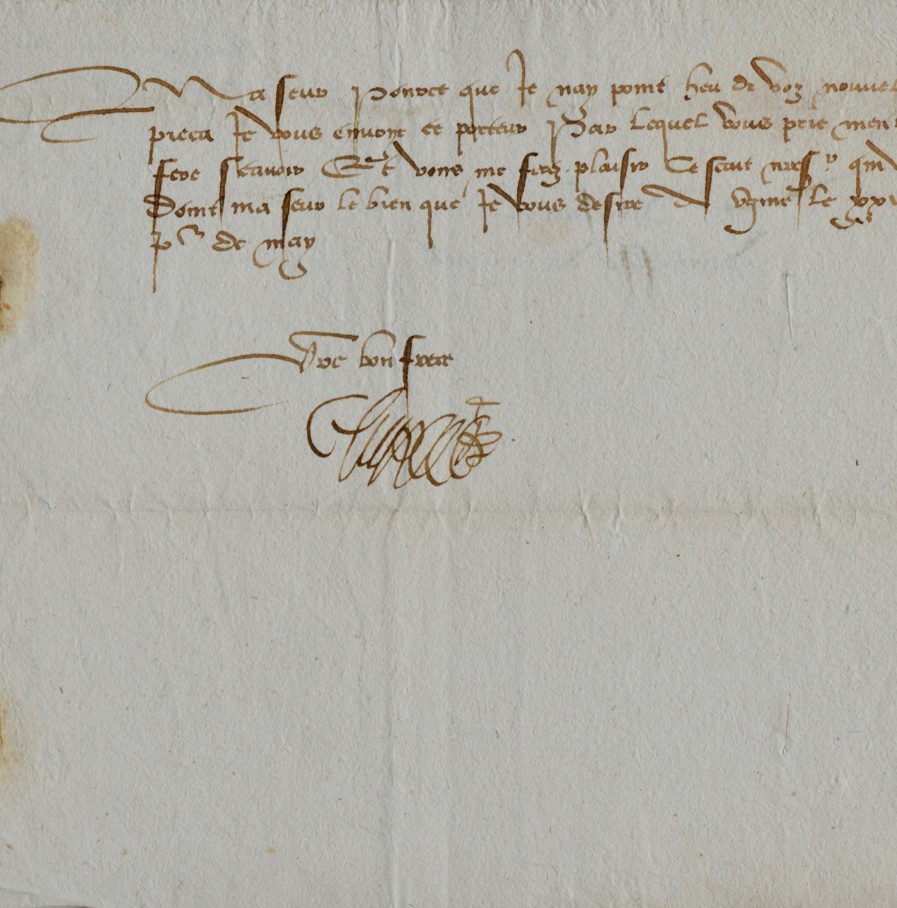 Ma seur Pource que Je nay point heu de voz nouvel
pieca Je vous envoye ce porteur Par lequel vous prie men
fere scavoir Et vous me ferez plaisir Ce scait nres^r qui v
Doint ma seur le bien que Je vous desire A le xxv
de may
Vre bon frere